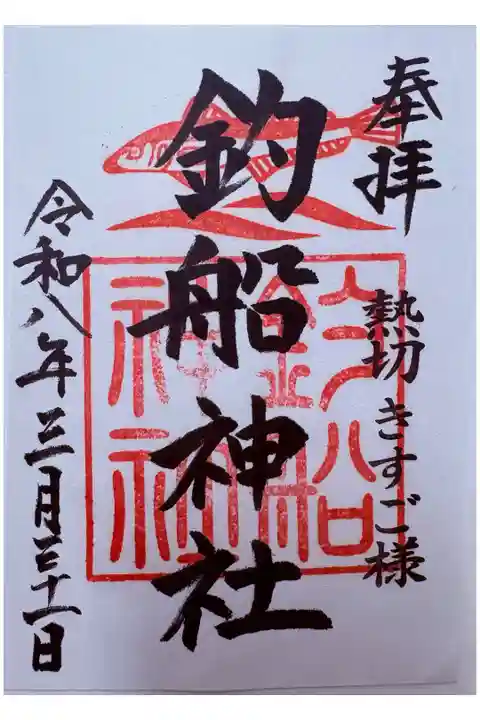 奉拝
熱切 きすご様
釣船神社
令和八年三月三十一日
釣船
神社